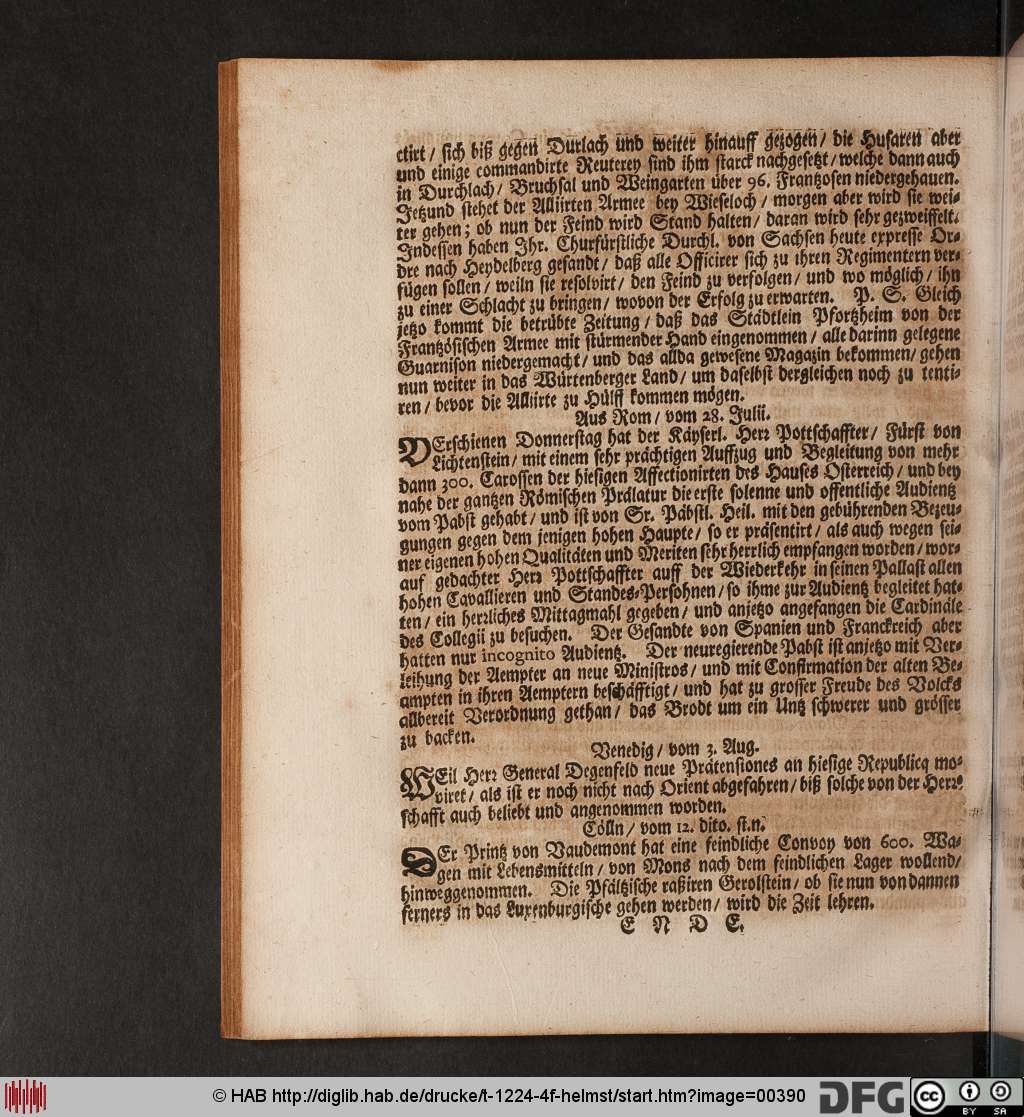 ctirt / sich biß gegen Durlach und weiter hinauff gezogen / die Husaren aber
und einige commandirte Reuterey sind ihm starck nachgesetzt / welche dann auch
in Durchlach / Bruchsal und Weingarten über 96. Frantzosen niedergehauen.
Jetzund stehet der Alliirten Armee bey Wieseloch / morgen aber wird sie wei-
ter gehen; ob nun der Feind wird Stand halten / daran wird sehr gezweiffelt.
Indessen haben Ihr. Churfürstliche Durchl. von Sachsen heute expresse Or-
dre nach Heydelberg gesandt / daß alle Officirer sich zu ihren Regimentern ver-
fügen sollen / weiln sie resolvirt / den Feind zu verfolgen / und wo möglich / ihn
zu einer Schlacht zu bringen / wovon der Erfolg zu erwarten. P. S. Gleich
jetzo kommt die betrübte Zeitung / daß das Städtlein Pfortzheim von der
Frantzösischen Armee mit stürmender Hand eingenommen / alle darinn gelegene
Guarnison niedergemacht / und das allda gewesene Magazin bekommen / gehen
nun weiter in das Würtenberger Land / um daselbst dergleichen noch zu tenti-
ren / bevor die Alliirte zu Hülff kommen mögen.
Aus Rom / vom 28. Julii.
VErschienen Donnerstag hat der Käyserl. Herr Pottschaffter / Fürst von
Lichtenstein / mit einem sehr prächtigen Auffzug und Begleitung von mehr
dann 300. Carossen der hiesigen Affectionirten des Hauses Osterreich / und bey
nahe der gantzen Römischen Prälatur die erste solenne und offentliche Audientz
vom Pabst gehabt / und ist von Sr. Päbstl. Heil. mit den gebührenden Bezeu-
gungen gegen dem jenigen hohen Haupte / so er präsentirt / als auch wegen sei-
ner eigenen hohen Qualitäten und Meriten sehr herrlich empfangen worden / wor-
auf gedachter Herr Pottschaffter auff der Wiederkehr in seinen Pallast allen
hohen Cavallieren und Standes-Persohnen / so ihme zur Audientz begleitet hat-
ten / ein herrliches Mittagmahl gegeben / und anjetzo angefangen die Cardinäle
des Collegii zu besuchen. Der Gesandte von Spanien und Franckreich aber
hatten nur incognito Audientz. Der neuregierende Pabst ist anjetzo mit Ver-
leihung der Aempter an neue Ministros / und mit Confirmation der alten Be-
ampten in ihren Aemptern beschäfftigt / und hat zu grosser Freude des Volcks
allbereit Verordnung gethan / das Brodt um ein Untz schwerer und grösser
zu backen.
Venedig / vom 3. Aug.
WEil Herr General Degenfeld neue Prätensiones an hiesige Republicq mo-
viret / als ist er noch nicht nach Orient abgefahren / biß solche von der Herr-
schafft auch beliebt und angenommen worden.
Cölln / vom 12. dito. st. n.
DEr Printz von Vaudemont hat eine feindliche Convoy von 600. Wa-
gen mit Lebensmitteln / von Mons nach dem feindlichen Lager wollend /
hinweggenommen. Die Pfältzische raßiren Gerolstein / ob sie nun von dannen
ferners in das Luxenburgische gehen werden / wird die Zeit lehren.
E N D E.
© HAB http://diglib.hab.de/drucke/t-1224-4f-helmst/start.htm?image=00390
DFG
cc
BY SA